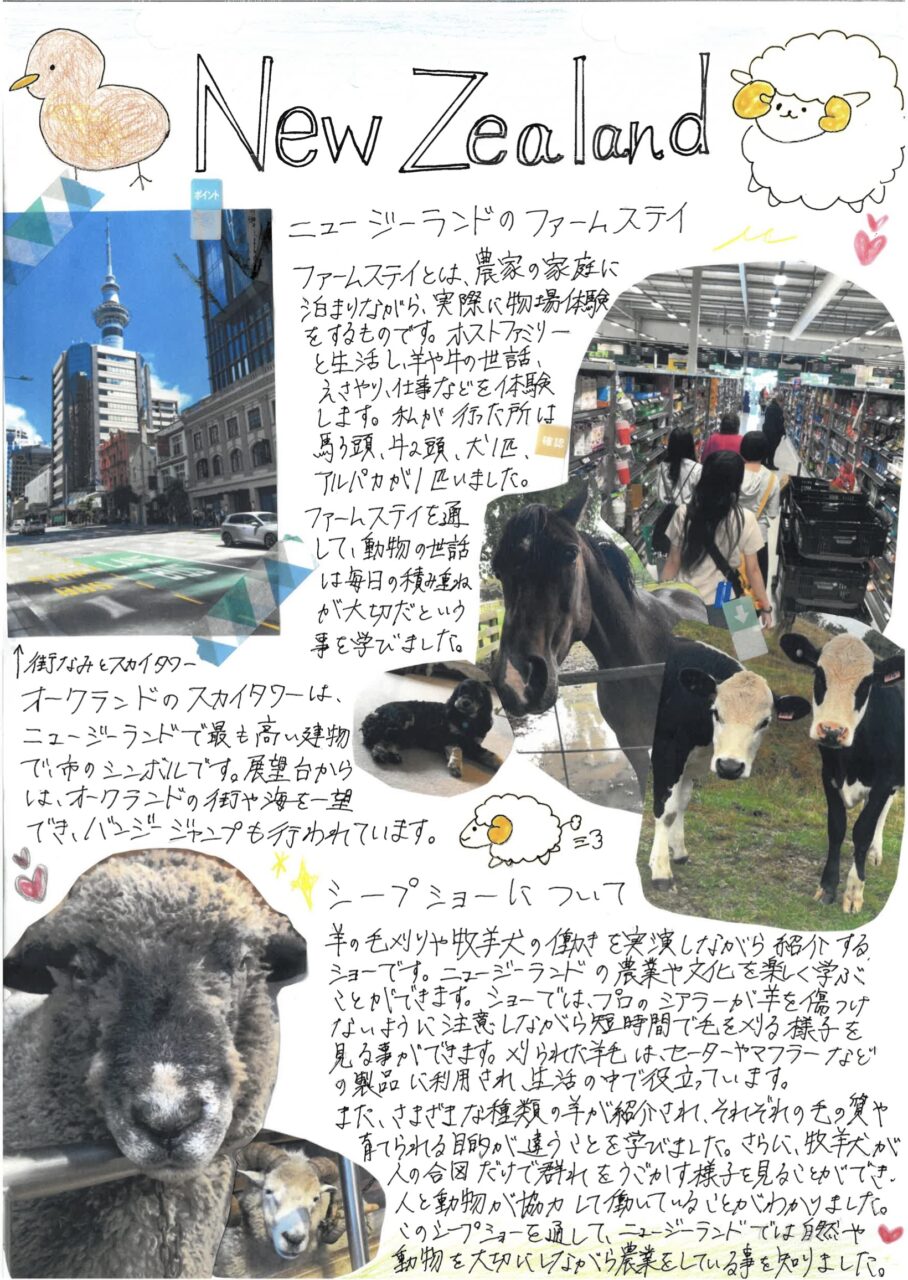 New Zealand
ポイント
ニュージーランドのファームステイ
ファームステイとは、農家の家庭に
泊まりながら、実際に物場体験
をするものです。ホストファミリー
と生活し、羊や牛の世話、
えさやり、仕事などを体験
します。私が行った所は
馬3頭、牛2頭、犬1匹、
確認
アルパカが1匹いました。
ファームステイを通
して、動物の世話
は毎日の積み重ね
が大切だという
事を学びました。
↑街なみとスカイタワー
オークランドのスカイタワーは、
ニュージーランドで最も高い建物
で、市のシンボルです。展望台から
は、オークランドの街や海を一望
でき、バンジージャンプも行われています。
シープショーについて
羊の毛刈りや牧羊犬の働きを実演しながら紹介する
ショーです。ニュージーランドの農業や文化を楽しく学ぶ
ことができます。ショーでは、プロのシアラーが羊を傷つけ
ないように注意しながら短時間で毛を刈る様子を
見る事ができます。刈られた羊毛は、セーターやマフラーなど
の製品に利用され、生活の中で役立っています。
また、さまざまな種類の羊が紹介され、それぞれの毛の質や
育てられる目的が違うことを学びました。さらに、牧羊犬が
人の合図だけで群れをうごかす様子を見ることができ、
人と動物が協力して働いていることがわかりました。
このシープショーを通して、ニュージーランドでは自然や
動物を大切にしながら農業をしている事を知りました。